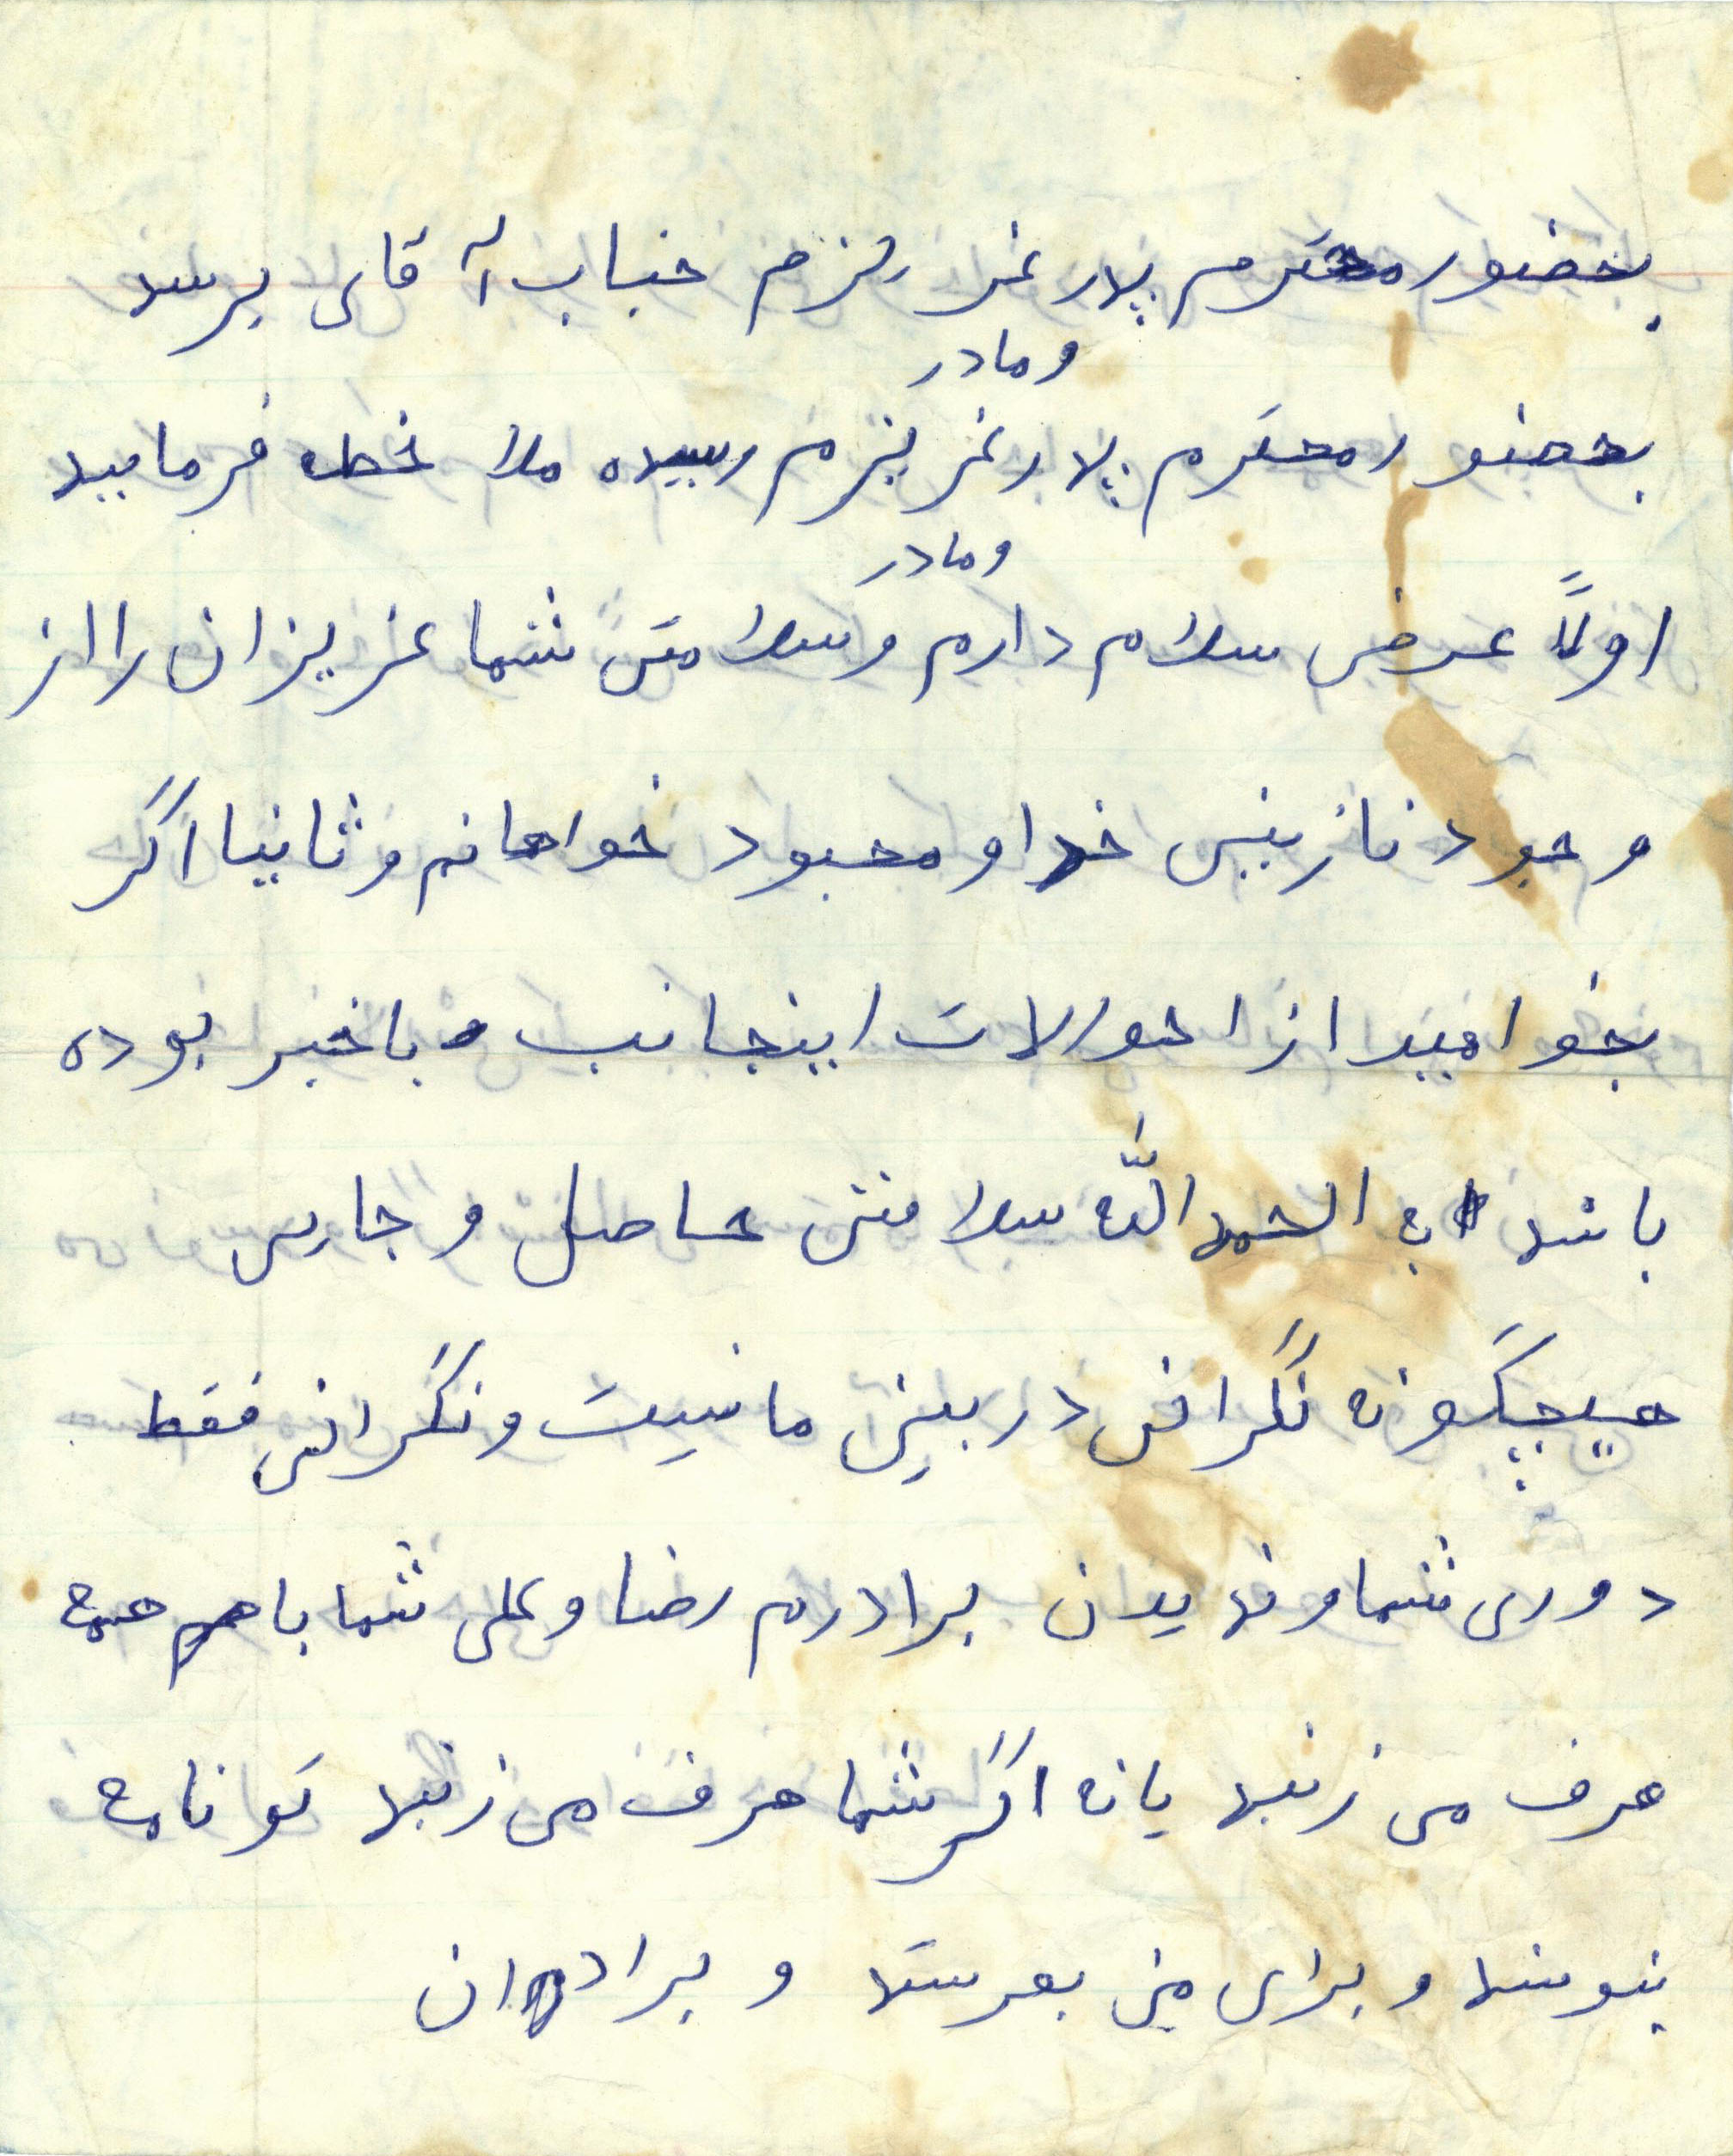 بحضور محترم پدر عزیزم جناب آقای برسد
و مادر
بحضور محترم پدر عزیزم رسیده ملاخطه فرمایید
و مادر
اولاً عرض سلام دارم و سلامتی شما عزیزان را از
وجود نازنین خداو معبود خواهانم و ثانیا اگر
بخوامیید از احوالات اینجانب باخبر بوده
باشد به الحمدالله سلامتی حاصل و جاری
هیچگونه نگرانی در بین ما نیست و نگرانی فقط
دوری شما و ندیدن برادرم رضا و علی شما با همه
حرف می زنید یا نه اگر شما حرف می زنید تو نامه
بنوسد و برای من بعرستد و برادران